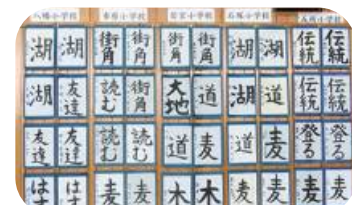 八幡小学校 春原小学校 若宮小学校 石塚小学校 五所小学校
湖 湖 街角 街角 街角 街角 湖 湖 伝統 伝統
湖 友達 読む 街角 大地 道 湖 道 伝統 伝統
友達 友達 読む 読む 道 麦 道 麦 登る 登る
は は 麦 麦 木 木 麦 麦 麦 麦